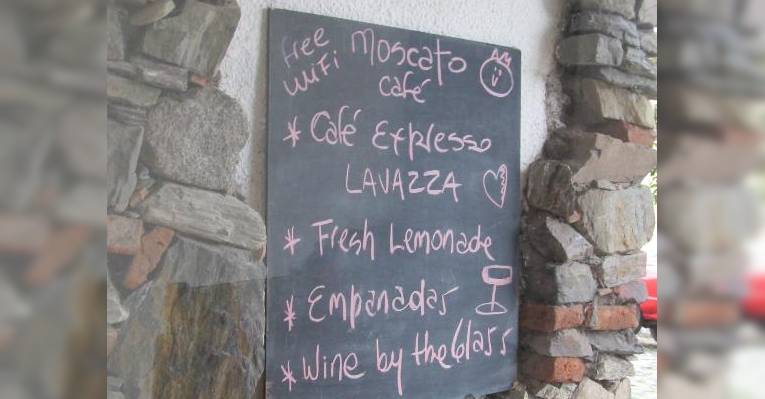 free Moscato
WiFi café
* Café Expresso
LAVAZZA
* Fresh Lemonade
* Empanadas
* Wine by the Glass